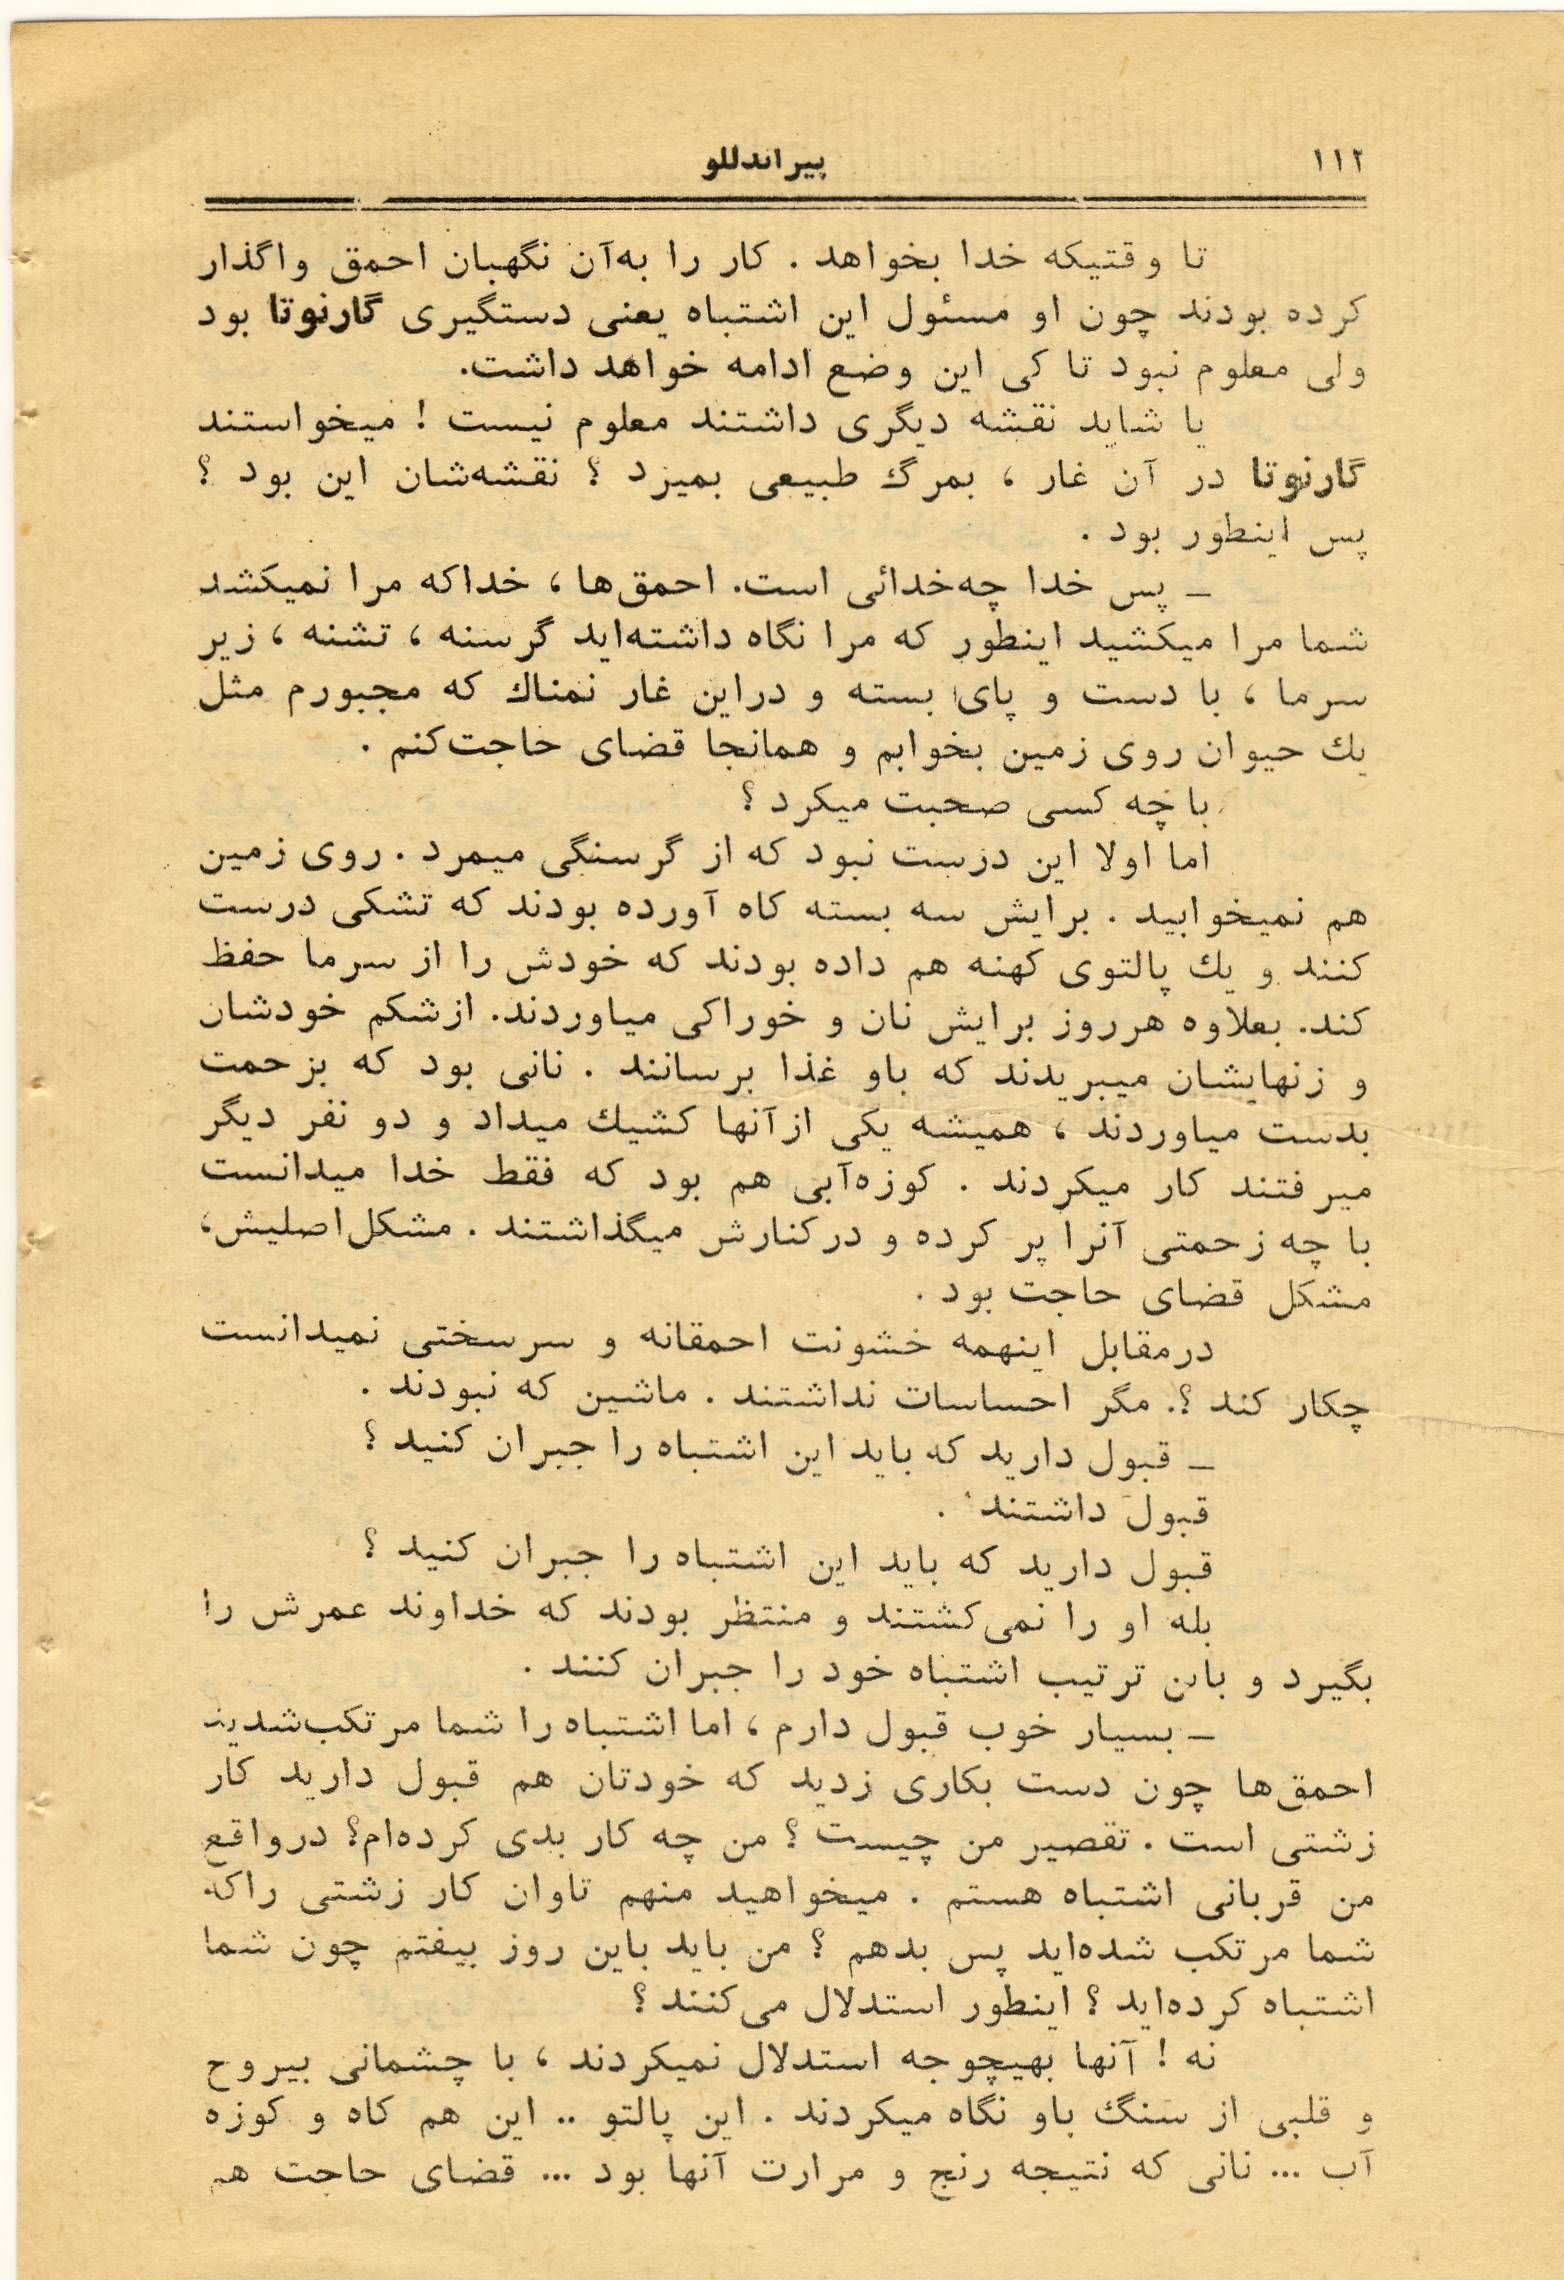 ۱۱۲ پیراندللو
تا وقتیکه خدا بخواهد . کار را به‌آن نگهبان احمق واگذار
کرده بودند چون او مسئول این اشتباه یعنی دستگیری گارنوتا بود
ولی معلوم نبود تا کی این وضع ادامه خواهد داشت.
یا شاید نقشه دیگری داشتند معلوم نیست ! میخواستند
گارنوتا در آن غار ، بمرگ طبیعی بمیرد ؟ نقشه‌شان این بود ؟
پس اینطور بود .
ـ پس خدا چه‌خدائی است. احمق‌ها ، خداکه مرا نمیکشد
شما مرا میکشید اینطور که مرا نگاه داشته‌اید گرسنه ، تشنه ، زیر
سرما ، با دست و پای بسته و دراین غار نمناك که مجبورم مثل
یك حیوان روی زمین بخوابم و همانجا قضای حاجت‌کنم .
با چه کسی صحبت میکرد ؟
اما اولا این درست نبود که از گرسنگی میمرد . روی زمین
هم نمیخوابید . برایش سه بسته کاه آورده بودند که تشکی درست
کنند و یك پالتوی کهنه هم داده بودند که خودش را از سرما حفظ
کند. بعلاوه هرروز برایش نان و خوراکی میاوردند. ازشکم خودشان
و زنهایشان میبریدند که باو غذا برسانند . نانی بود که بزحمت
بدست میاوردند ، همیشه یکی ازآنها کشیك میداد و دو نفر دیگر
میرفتند کار میکردند . کوزه‌آبی هم بود که فقط خدا میدانست
با چه زحمتی آنرا پر کرده و درکنارش میگذاشتند . مشکل‌اصلیش،
مشکل قضای حاجت بود .
درمقابل اینهمه خشونت احمقانه و سرسختی نمیدانست
چکار کند ؟. مگر احساسات نداشتند . ماشین که نبودند .
ـ قبول دارید که باید این اشتباه را جبران کنید ؟
قبول داشتند .
قبول دارید که باید این اشتباه را جبران کنید ؟
بله او را نمی‌کشتند و منتظر بودند که خداوند عمرش را
بگیرد و باین ترتیب اشتباه خود را جبران کنند .
ـ بسیار خوب قبول دارم ، اما اشتباه را شما مرتکب‌شدید
احمق‌ها چون دست بکاری زدید که خودتان هم قبول دارید کار
زشتی است . تقصیر من چیست ؟ من چه کار بدی کرده‌ام؟ درواقع
من قربانی اشتباه هستم . میخواهید منهم تاوان کار زشتی راکه
شما مرتکب شده‌اید پس بدهم ؟ من باید باین روز بیفتم چون شما
اشتباه کرده‌اید ؟ اینطور استدلال می‌کنند ؟
نه ! آنها بهیچوجه استدلال نمیکردند ، با چشمانی بیروح
و قلبی از سنگ باو نگاه میکردند . این پالتو .. این هم کاه و کوزه
آب ... نانی که نتیجه رنج و مرارت آنها بود ... قضای حاجت هم